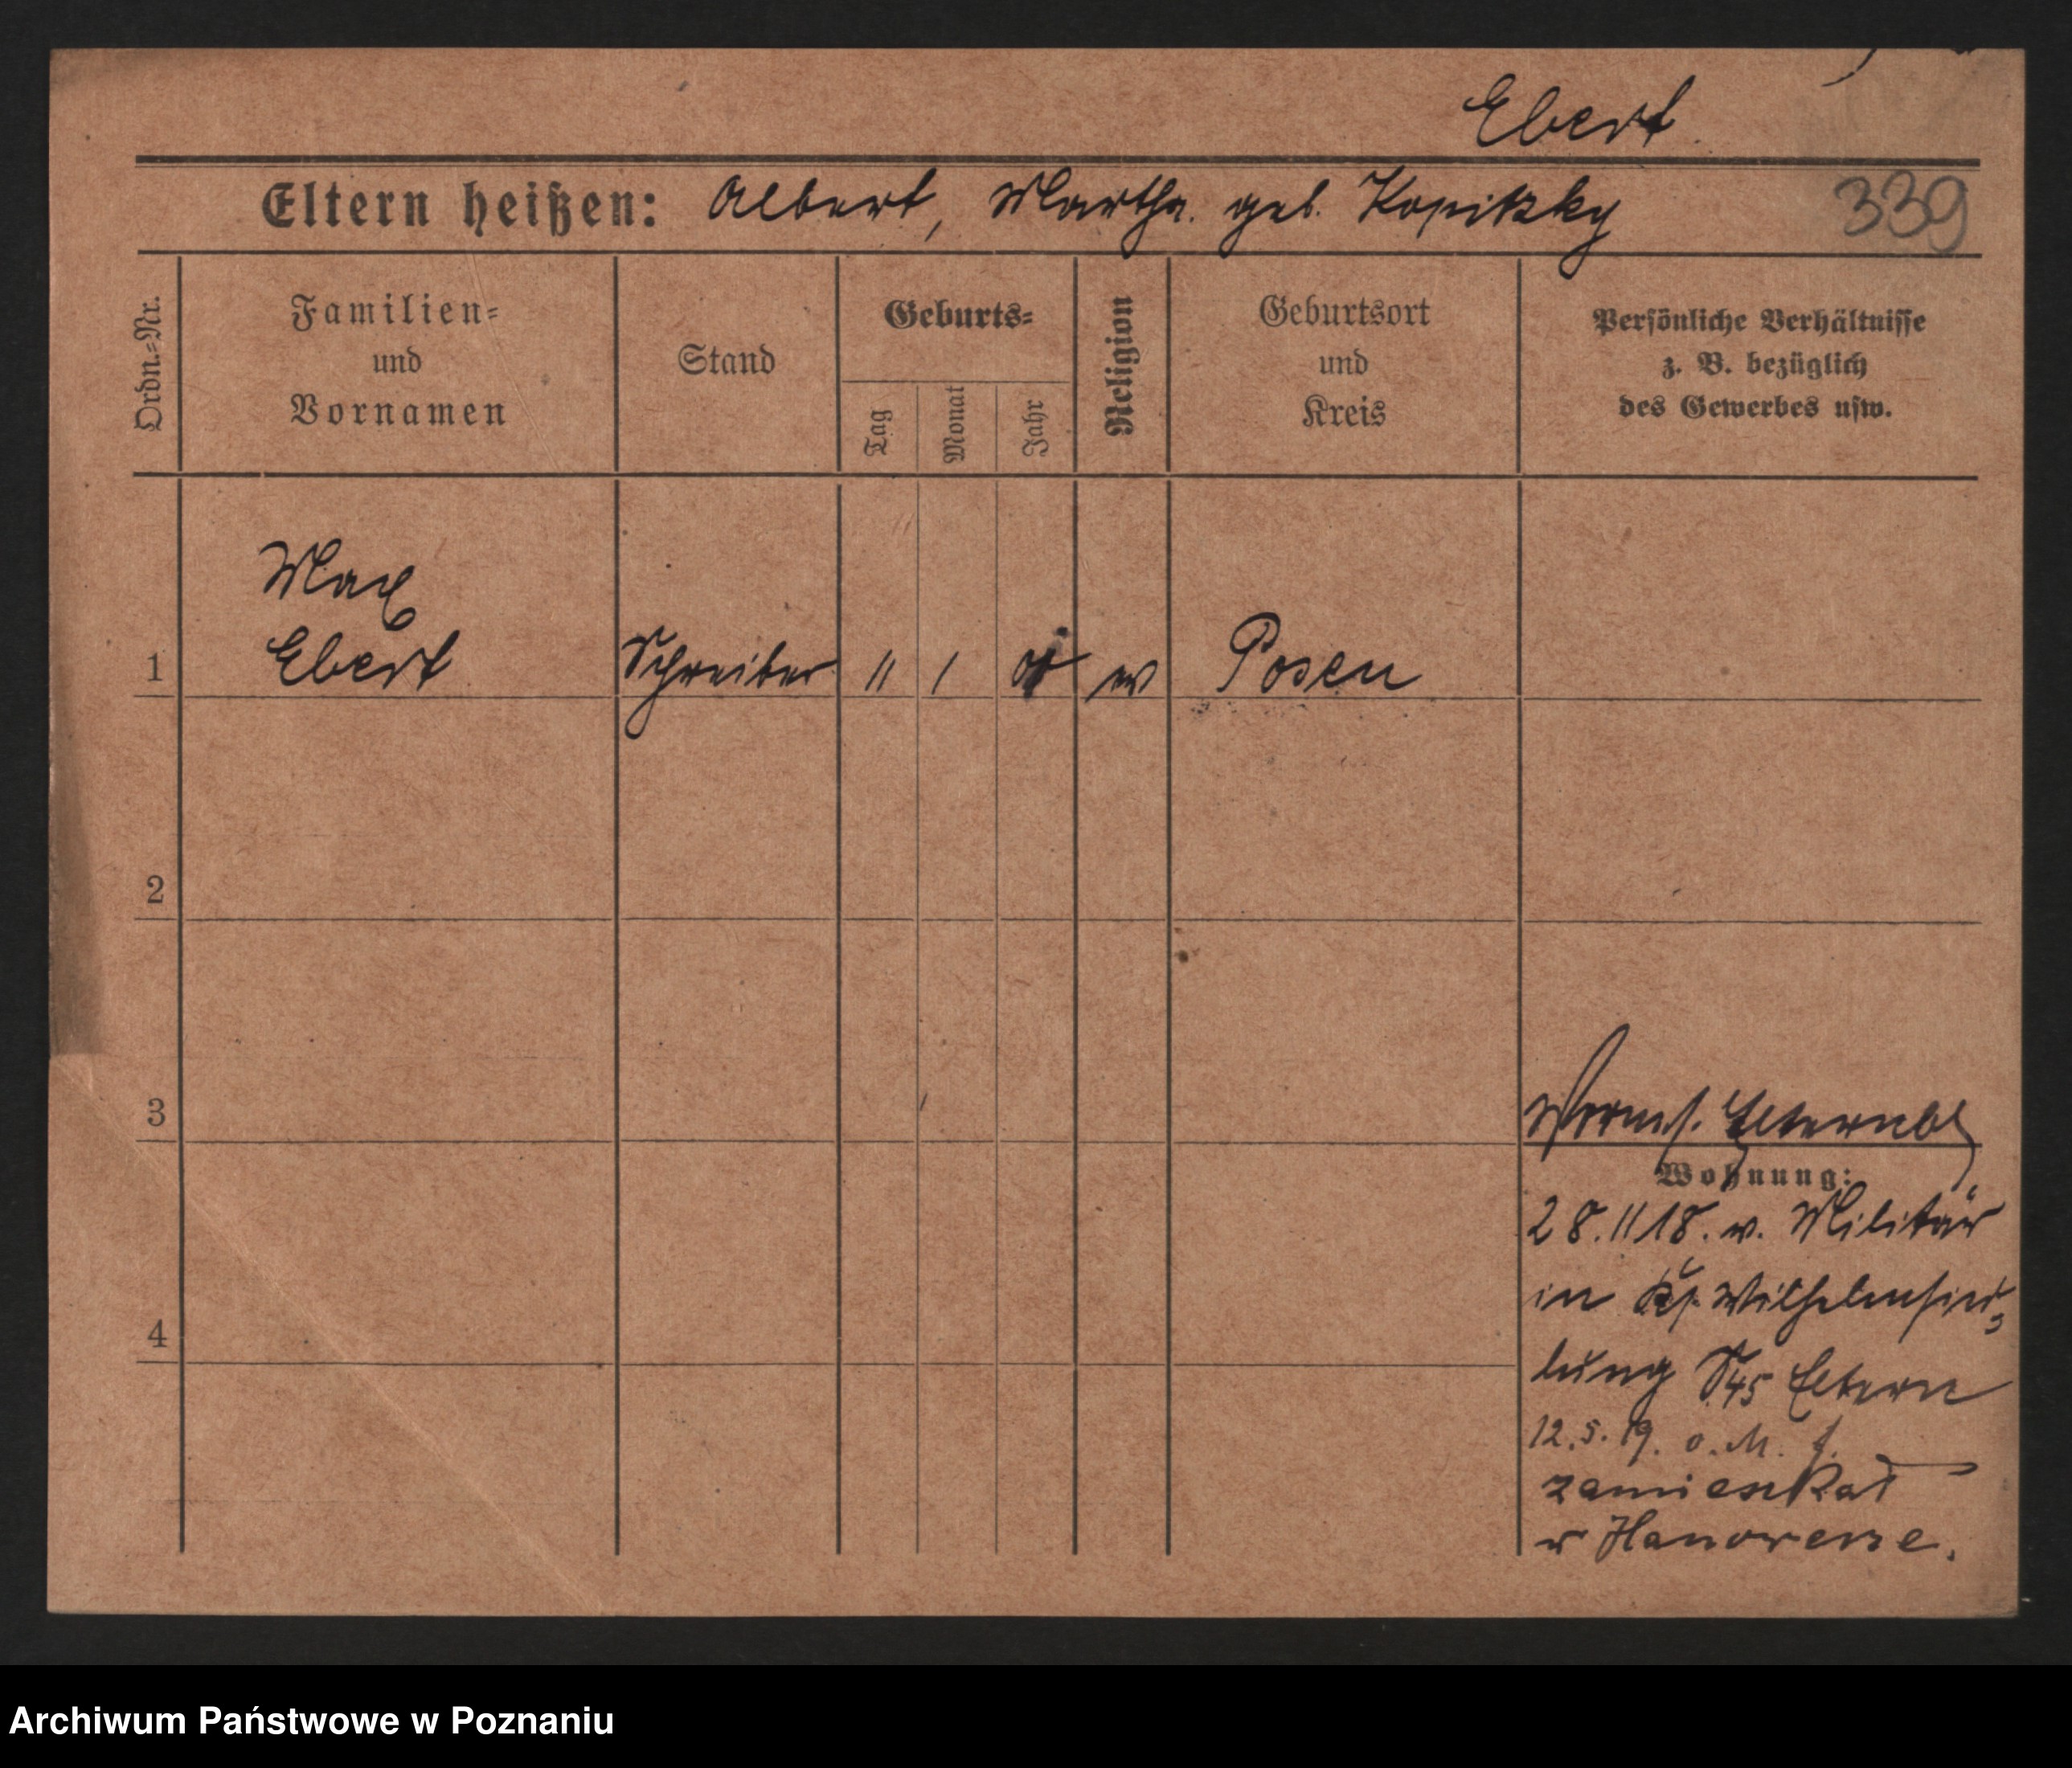 Ebert
Eltern heißen: Albert, Martha geb. Kopitzky
339
Ordn.=Nr.
Familien=
und
Vornamen
Stand
Geburts=
Tag
Monat
Jahr
Religion
Geburtsort
und
Kreis
Persönliche Verhältnisse
z. B. bezüglich
des Gewerbes usw.
Max
1 Ebert Schreiber 11 1 ev Posen
2
3
Wohnung:
28. 11 18. v. Militär
in Wilhelmsied=
4
lung 45 Eltern
12. 5. 19. o. M.
zamieszkał
w Hanowerze.
Archiwum Państwowe w Poznaniu